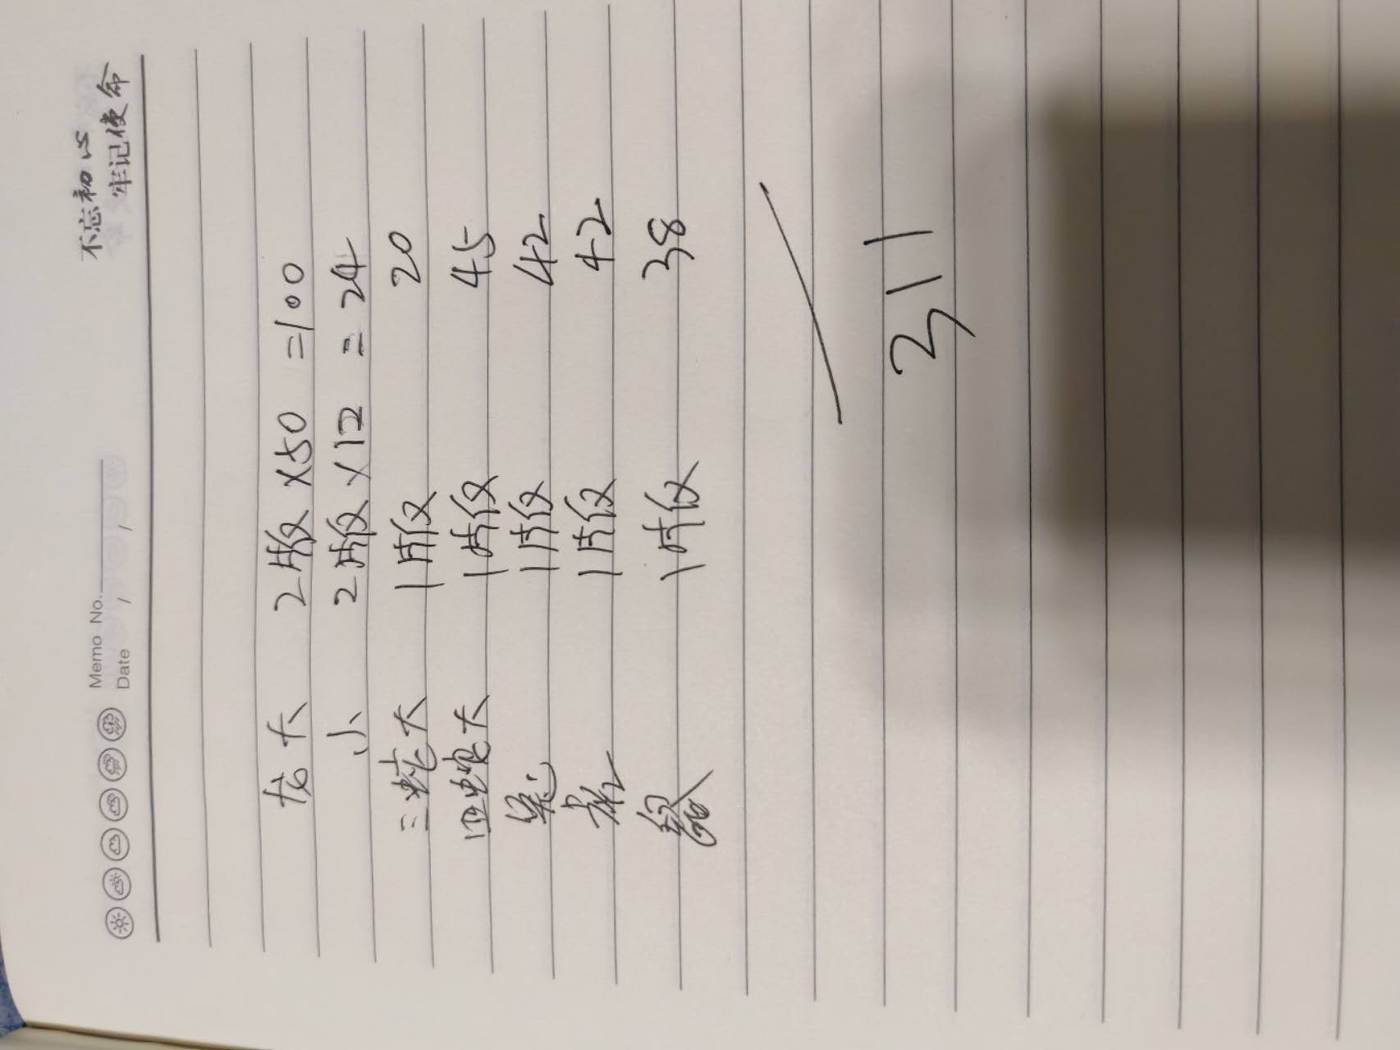 不忘初心
牢记使命
Memo No.
Date
龙大 2版 ×50 =100
小 2版 ×12 = 24
三蛇大 1版 20
四蛇大 1版 45
1版 42
1版 42
1版 38
311